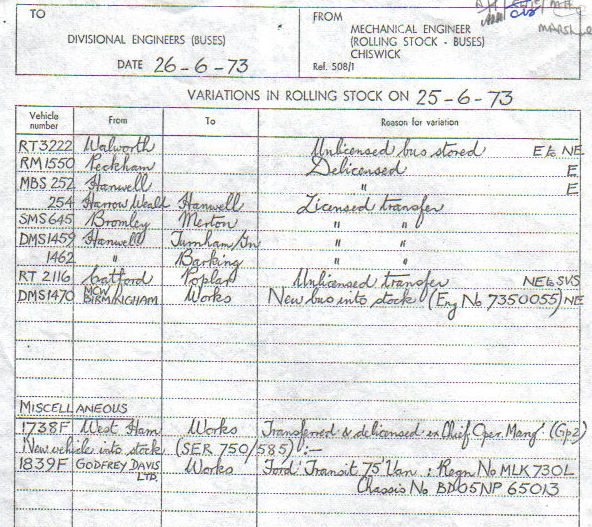 TO
DIVISIONAL ENGINEERS (BUSES)
DATE 26-6-73
FROM
MECHANICAL ENGINEER
(ROLLING STOCK - BUSES)
CHISWICK
Ref. 508/1
VARIATIONS IN ROLLING STOCK ON 25-6-73
Vehicle number From To Reason for variation
RT3222 Walworth Unlicensed bus stored E to NE
RM1550 Peckham Delicensed E
MBS 252 Hanwell " E
254 Harrow Weald Hanwell Licensed transfer
SMS 645 Bromley Merton " "
DMS1459 Hanwell Turnham Gn " "
1462 " Barking " "
RT 2116 Catford Poplar Unlicensed transfer NE to SVS
DMS1470 MCW BIRMINGHAM Works New bus into stock (Eng No 7350055) NE
MISCELLANEOUS
1738F West Ham Works Transferred & delicensed ex Chief Oper. Mang! (Gp2)
New vehicle into stock (SER 750/585) :-
1839F GODFREY DAVIS LTD. Works Ford Transit 75 Van : Regn No MLK 730L
Chassis No BD05NP 65013